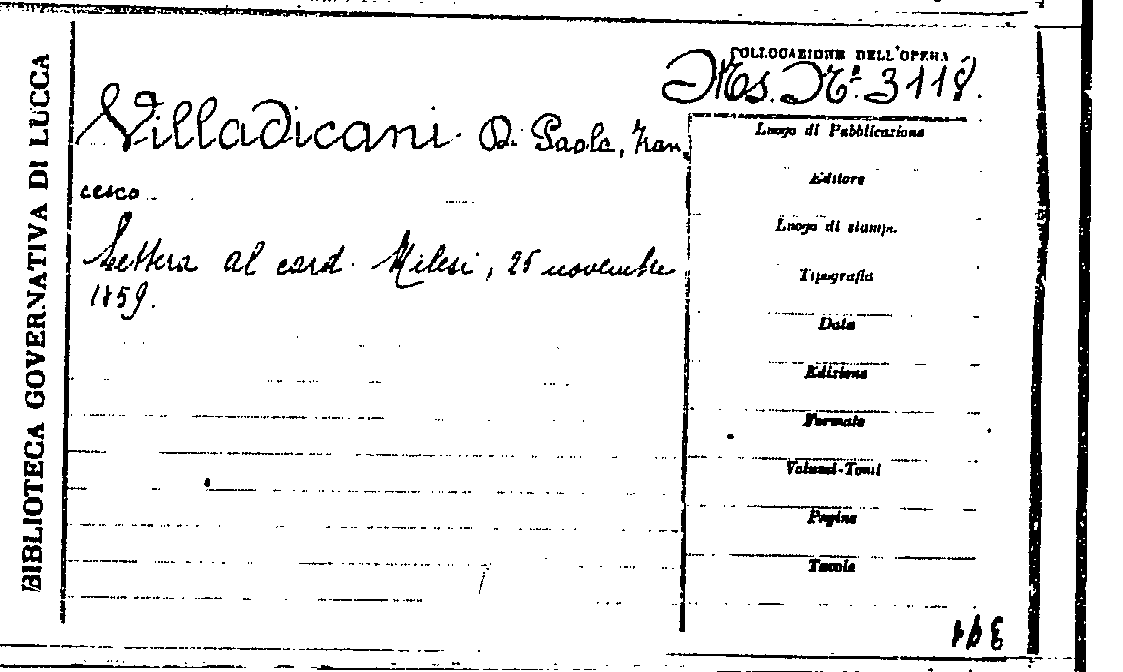 BIBLIOTECA GOVERNATIVA DI LUCCA
COLLOCAZIONE DELL'OPERA
Ms. N.º 3118.
Villadicani D. Paola, Fran
cesco
Lettera al card. Milesi, 25 novembre
1859.
Luogo di Pubblicazione
Editore
Luogo di stampa
Tipografia
Data
Edizione
Formato
Volumi-Tomi
Pagine
Tavole